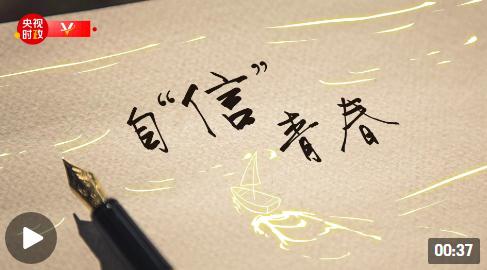 央视
时政
V
自“信”青春
00:37